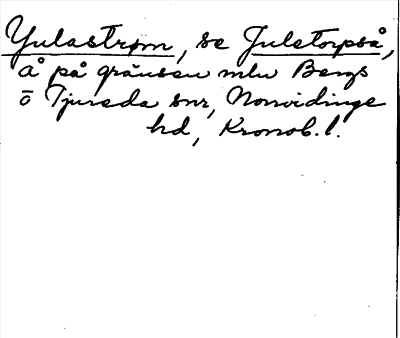 Yulastrøm, se Juletorpså,
å på gränsen mlu Bergs
o Tjureda snr, Norrvidinge
hd, Kronob. l.